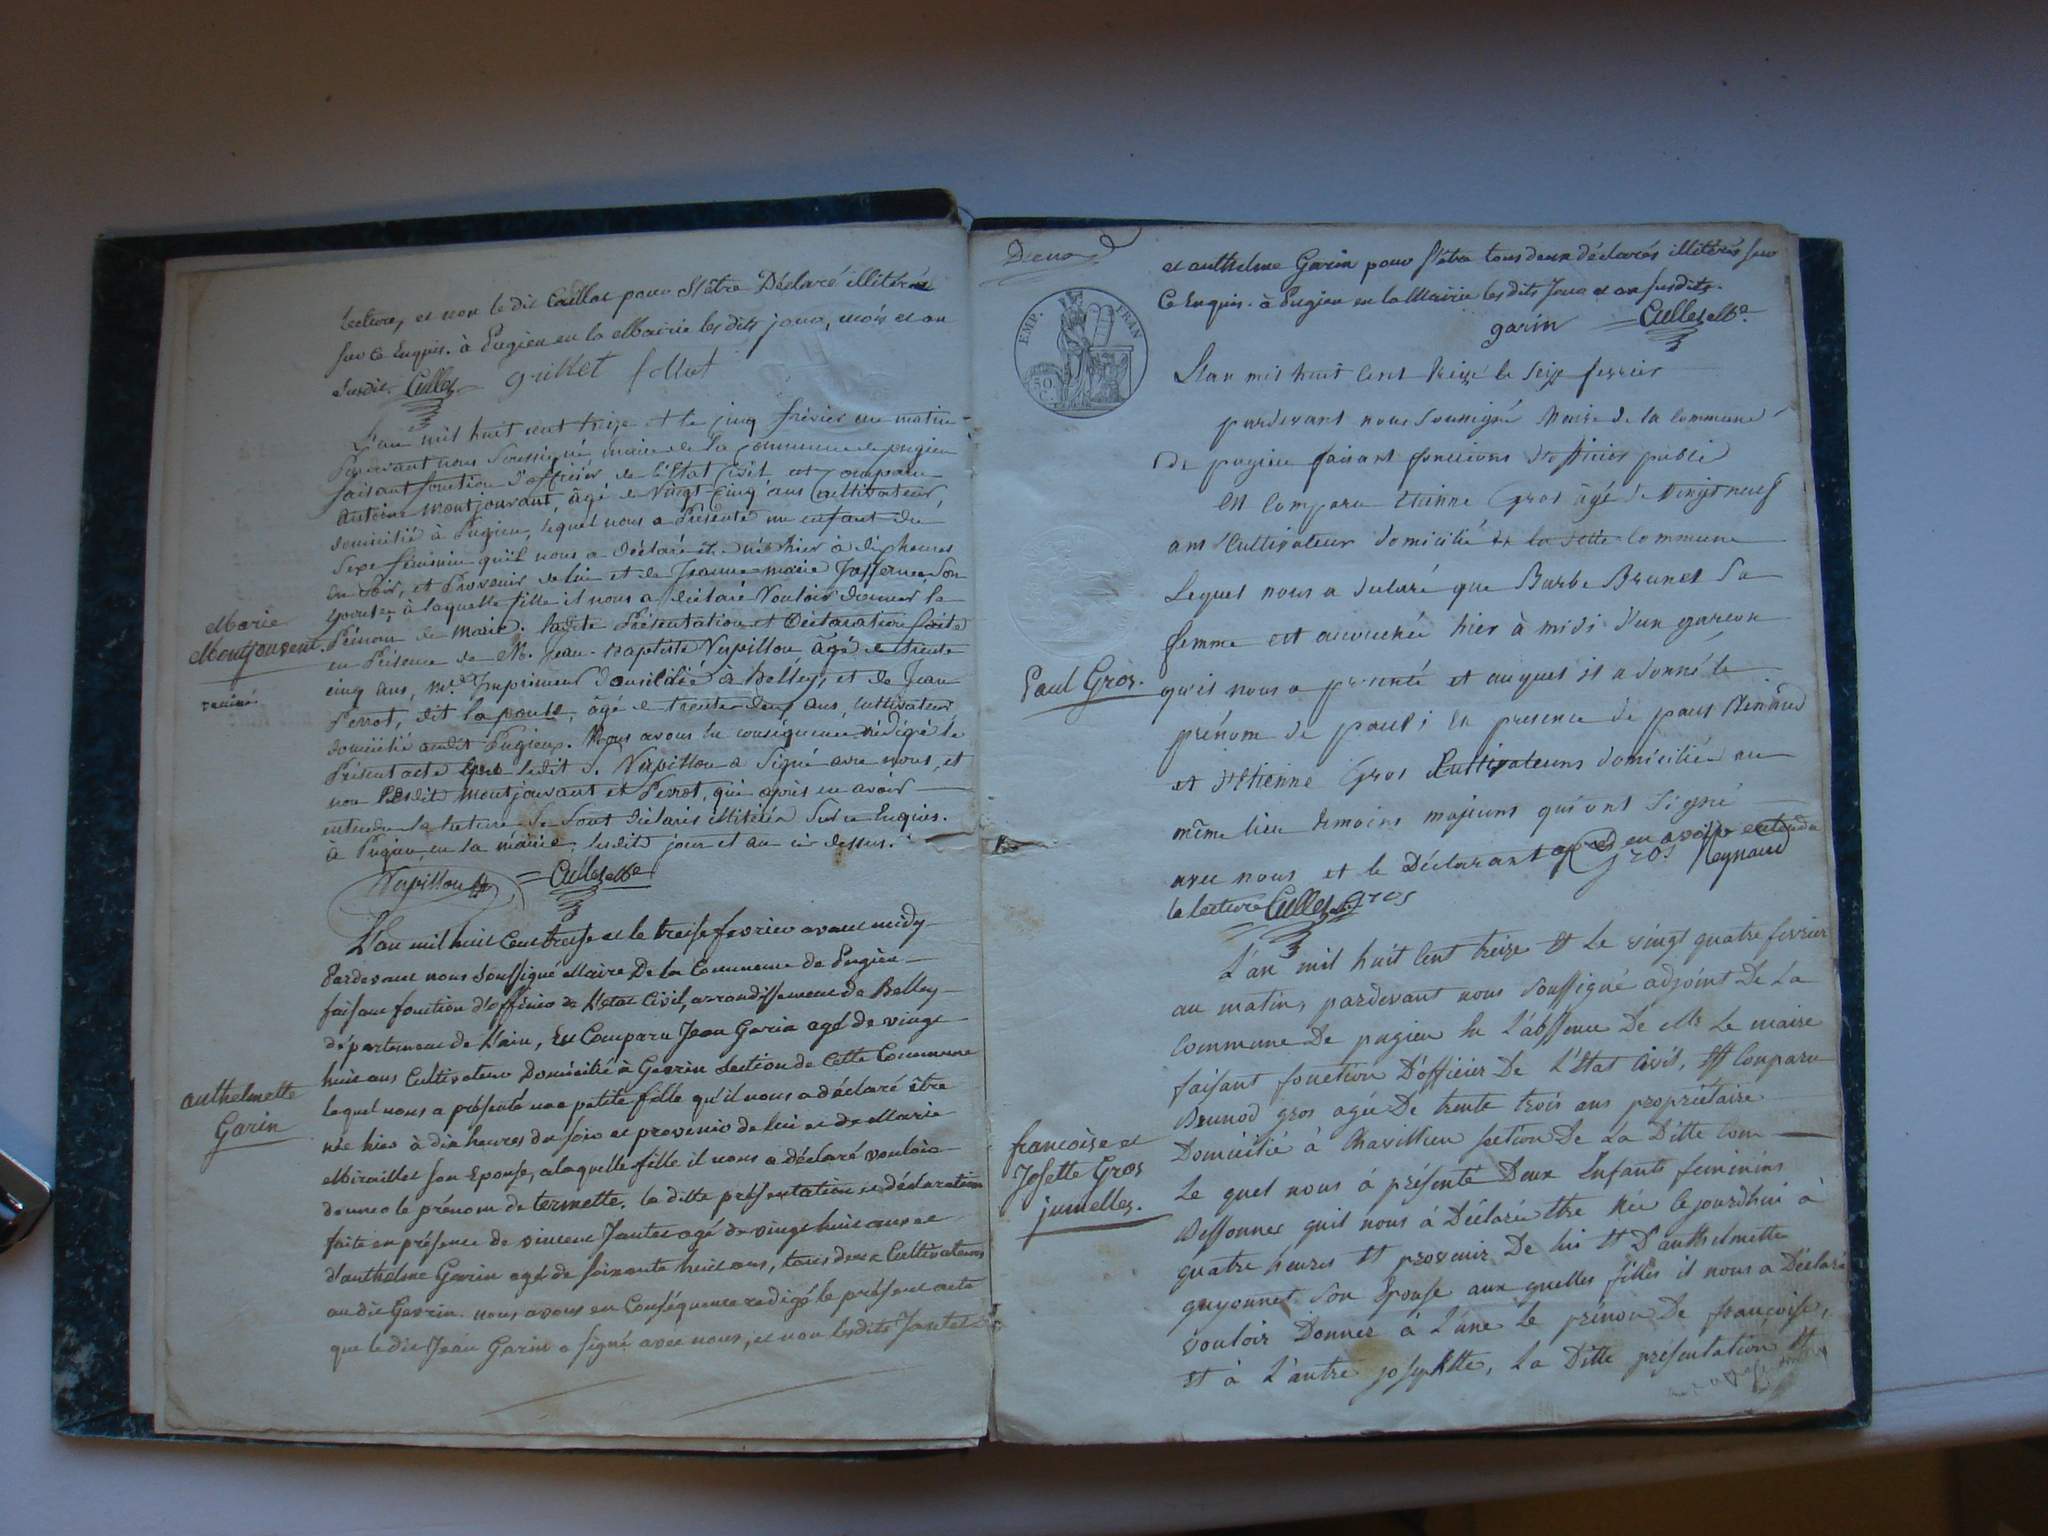 lecture, et non le dit Caillat pour s'être Déclaré illitéré
sur ce Enquis. à Pugieu en la Mairie les dits jour, mois et an
susdit. Cullet grillet
L'an mil huit cent treize et le cinq février au matin
Pardevant nous Soussigné, maire de la Commune de pugieu
faisant fonction d'officier de l'Etat Civil est Comparu
Antoine Montjouvant, âgé de vingt-cinq ans Cultivateur,
domicilié à Pugieu, lequel nous a Présenté un enfant du
Sexe féminin qu'il nous a déclaré être né hier à dix heures
du Soir, et Provenir de lui et de Jeanne-marie Son
Epouse, à laquelle fille il nous a déclaré Vouloir donner le
Marie
Montjouvent.
Prénom de Marie. ladite Présentation et Déclaration faite
en Présence de M. Jean-Baptiste Verpillon âgé de trente
cinq ans, md. Imprimeur domicilié à Belley, et de Jean
Perrot, dit la poule, âgé de trente deux ans, cultivateur,
domicilié audit Pugieu. Nous avons en conséquence rédigé le
Présent acte que ledit S. Verpillon a Signé avec nous, et
non lesdit Montjouvant et Perrot, qui après en avoir
entendu la lecture se Sont déclarés illitérés Sur ce Enquis.
à Pugieu, en la mairie, lesdit jour et an ci-dessus.
Verpillon Cullet Me
L'an mil huit Cent treise et le treise fevrier avant midy
Pardevant nous Soussigné Maire De la Commune de Pugieu
faisant fonction d'officier de l'Etat Civil, arrondissement de Belley
département de l'ain, Est Comparu Jean Garin agé de vingt
huit ans Cultivateur Domicilié à Gevrin Section de Cette Commune
authelmette
Garin
lequel nous a présenté une petite fille qu'il nous a déclaré être
née hier à dix heures du soir et provenir de lui et de Marie
Miraillet son Epouse, a laquelle fille il nous a déclaré vouloir
donner le prénom de termette. la ditte présentation et déclaration
faite en présence de vincent Jantet agé de vingt huit ans et
d'anthelme Garin agé de soixante huit ans, tous deux Cultivateurs
au dit Gevrin. nous avons en Conséquence redigé le présent acte
que le dit Jean Garin a signé avec nous, et non lesdits Jantet
et anthelme Garin pour s'être tous deux déclarés illitérés sur
Ce Enquis. à Pugieu en la Mairie les dits Jour et an susdits.
garin Cullet Me
EMP. FRAN
50
C.
L'an mil huit Cent treize le seize fevrier
pardevant nous Soussigné Maire de la Commune
de pugieu faisant fonctions d'officier public
est comparu etienne Gros âgé de vingt neuf
ans Cultivateur domicilié de la ditte Commune
Lequel nous a declaré que Barbe Brunet Sa
femme est accouchée hier à midi d'un garcon
Paul Gros.
qu'il nous a presenté et auquel il a donné le
prénom de paul; en presence de paul
et d'etienne Gros Cultivateurs domiciliés au
même lieu temoins majeurs qui ont signé
avec nous et le Déclarant après en avoir entendu
la lecture Cullet gros Gros Reynaud
L'an mil huit Cent treize Et Le vingt quatre fevrier
au matin, pardevant nous soussigné adjoint De La
Commune De pugieu En L'abssence De Mr Le maire
faisant fonction D'officier De L'Etat Civil, Est Comparu
Brunod gros agée De trente trois ans propriétaire
Domicilié à Chavillieu section De La Ditte Com
francoise et
Josette Gros
jumelles.
Le quel nous à présenté Deux Enfants feminins
quil nous à Déclarée Etre Née Cejourdhui à
quatre heures Et provenir De lui Et D'anthelmette
guyonnet Son Epouse aux quelles filles il nous a Déclaré
vouloir Donner à L'une Le prénom De françoise,
Et à L'autre josephtte, La Ditte présentation Et